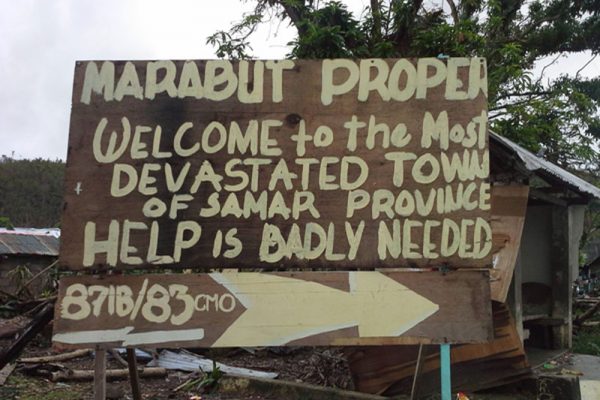 MARABUT PROPER
WELCOME to the Most
DEVASTATED TOWN
OF SAMAR PROVINCE
HELP iS BADLY NEEDED
871B/83CMO